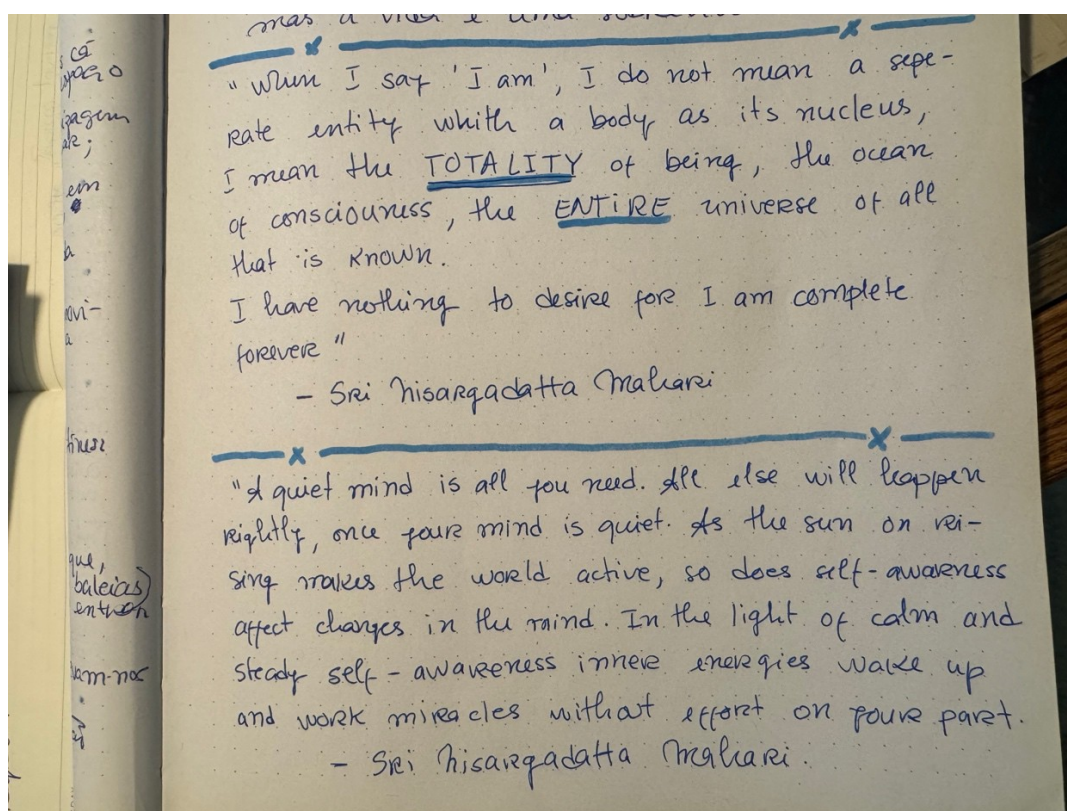 mas a vida é uma
"When I say 'I am', I do not mean a sepe-
rate entity whith a body as its nucleus,
I mean the TOTALITY of being, the ocean
of consciouness, the ENTIRE universe of all
that is known.
I have nothing to desire for I am complete
forever"
- Sri Nisargadatta Mahari
"A quiet mind is all you need. All else will happen
rightly, once your mind is quiet. As the sun on ri-
sing makes the world active, so does self-awareness
affect changes in the mind. In the light of calm and
steady self-awareness inner energies wake up
and work miracles without effort on your part.
- Sri Nisargadatta Mahari.
cá
em
a
ovi-
a
que,
baleias)
entram
vam-nos